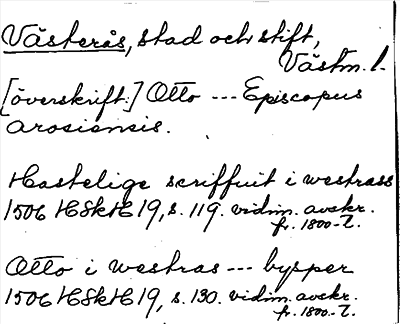 Västerås, stad och stift,
Västm. l.
[överskrift:] Otto --- Episcopus
arosiensis.
Hastelige scriffuit i westrass
1506 HSkH 19, s. 119. vidim. avskr.
fr. 1800-t.
Otto i westras --- bysper
1506 HSkH 19, s. 130. vidim. avskr.
fr. 1800-t.